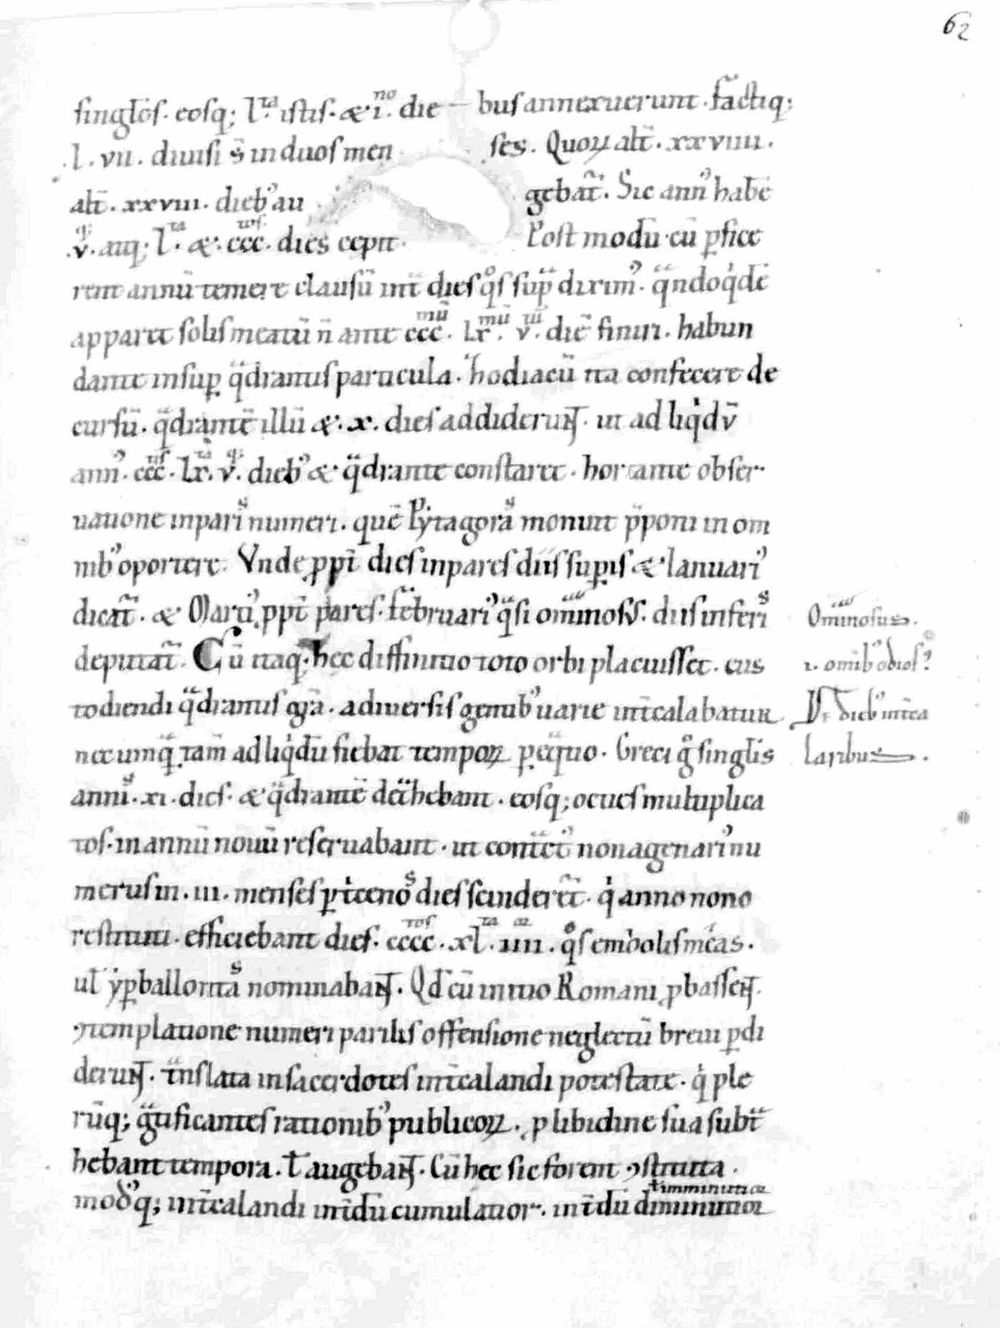 62
singlos. eosq; l.ta istis. & i.no die bus annexuerunt. factiq;
.l. vii. diuisi s̄ in duos men ses. Quoꝝ alt̄. xxviiii.
alt̄. xxviii. dieb' au gebat̄. Sic ann' habē
.v. auq; l.ta &. ccc. dies cepit. Post modū cū ꝑfice
rent annū temere clausū int̄ dies q°s sup̄ dixim'. q̄ndoq'dē
apparet solis meatū n̄ ante ccc.mū lx.mū v.tū diē finiri. habun
dante insuꝑ q̄drantis particula. hodiacū ita confecere de
cursū. q̄drantē illū &. x. dies addiderunt. ut ad liq'dū
ann'. ccc. lx. v. dieb' & q̄drante constaret. hortante obser
uatione inparis numeri. quē Pytagoras monuit p̄poni in om
nib' oportere. Vnde ꝓpt̄ dies inpares diis suꝑis & Ianuari'
dicat̄. & Marti' ꝓpt̄ pares. februari' q̄si ominosus. diis inferis
deputat̄. Cū itaq; hec diffinitio toto orbi placuisset. cus
todiendi q̄drantis gr̄a. a diuersis gentib' uarie int̄calabatur
nec umq̄ tam̄ ad liq'dū fiebat tempoꝝ ꝑeq̄tio. Greci g° singlis
annis. xi. dies. & q̄drantē det̄hebant. eosq; octies multiplica
tos. in annū nouū reseruabant. ut cont̄ct' nonagenari' nu
merus in. iii. menses ꝑ t'cenos dies scinderet̄. q' anno nono
restituti. efficiebant dies. cccc. xl. iiii. q°s embolismeas.
ul̄ yꝑballontas nominabant. Qd̄ cū initio Romani ꝓbassent.
ꝯtemplatione numeri parilis offensione neglectū breui ꝑdi
derunt. t̄nslata in sacerdotes int̄calandi potestate. q' ple
rūq; ḡtificantes rationib' publicoꝝ. ꝓ libidine sua subt̄
hebant tempora. l̄ augebant. Cū hec sic forent ꝯstituta.
modusq; int̄calandi int̄dū cumulatior. int̄dū diminutior
l̄ imminutior
Ominosus.
.i. omib' odios'
Diis dieb' int̄ca
laribus.